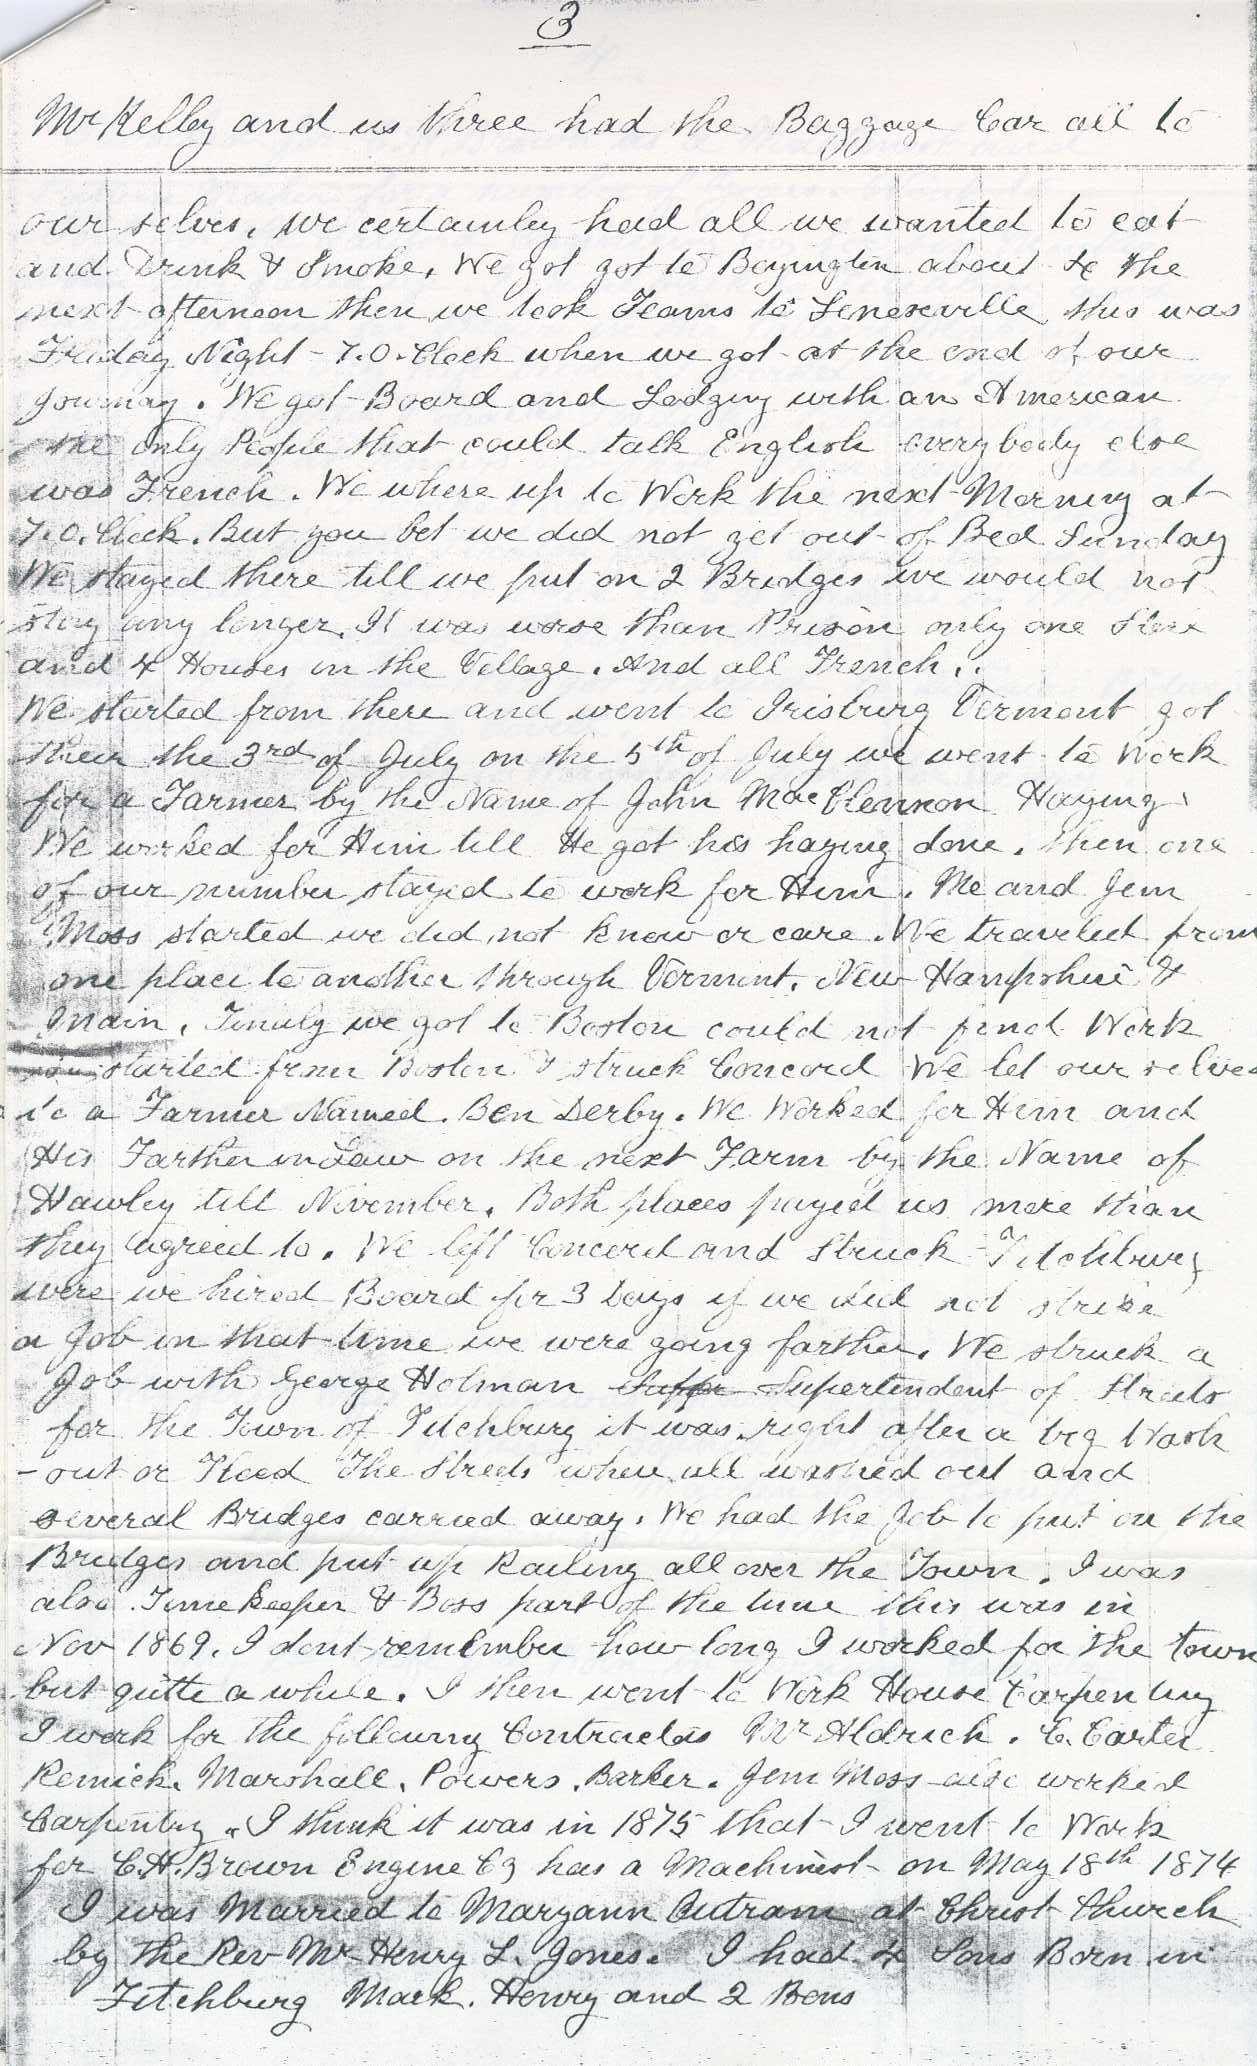 3
Mr Kelley and us three had the Baggage Car all to
our selves. we certainley had all we wanted to eat
and Drink & Smoke. We got got to Boyington about 4 the
next afternoon then we took Teams to Lenexville this was
Friday Night - 7.O.Clock when we got at the end of our
journay. We got Board and Lodging with an American
the only People that could talk English everybody else
was French. We where up to Work the next Morning at
7.O.Clock. But you bet we did not get out of Bed Sunday
We stayed there till we put on 2 Bridges we would not
stay any longer. It was worse than Prison only one Store
and 4 Houses in the Village. And all French..
We started from there and went to Irisburg Vermont got
their the 3rd of July on the 5th of July we went to Work
for a Farmer by the Name of John MacClennon Haying
We worked for Him till He got his haying done. then one
of our number stayed to work for Him. Me and Jem
Moss started we did not know or care. We traveled from
one place to another through Vermont. New Hampshire &
Main. Finaly we got to Boston could not find Work
started from Boston & struck Concord We let our selves
to a Farmer Named. Ben Derby. We Worked for Him and
His Farther in Law on the next Farm by the Name of
Hawley till November. Both places payed us more than
they agreed to. We left Concord and Struck Fitchburg
were we hired Board for 3 Days if we did not strike
a Job in that time we were going farther. We struck a
Job with George Holman Supper Supertendent of Streets
for the Town of Fitchburg it was right after a big Wash
- out or Flood The Streets when all washed out and
several Bridges carried away. We had the Job to put on the
Bridges and put up Railing all over the Town. I was
also Timekeeper & Boss part of the time this was in
Nov 1869. I dont remember how long I worked for the town
but quitte a while. I then went to Work House Carpenting
I work for the following Contractors Mr Aldrich. C. Carter
Remick. Marshall. Powers. Barker. Jem Moss also worked
Carpentry. I think it was in 1875 that I went to Work
for C.H. Brown Engine Co has a Machinest - on May 18th 1874
I was Married to Maryann Outram at Christ Church
by the Rev Mr Henry L. Jones. I had 4 Sons Born in
Fitchburg Mark. Henry and 2 Bens